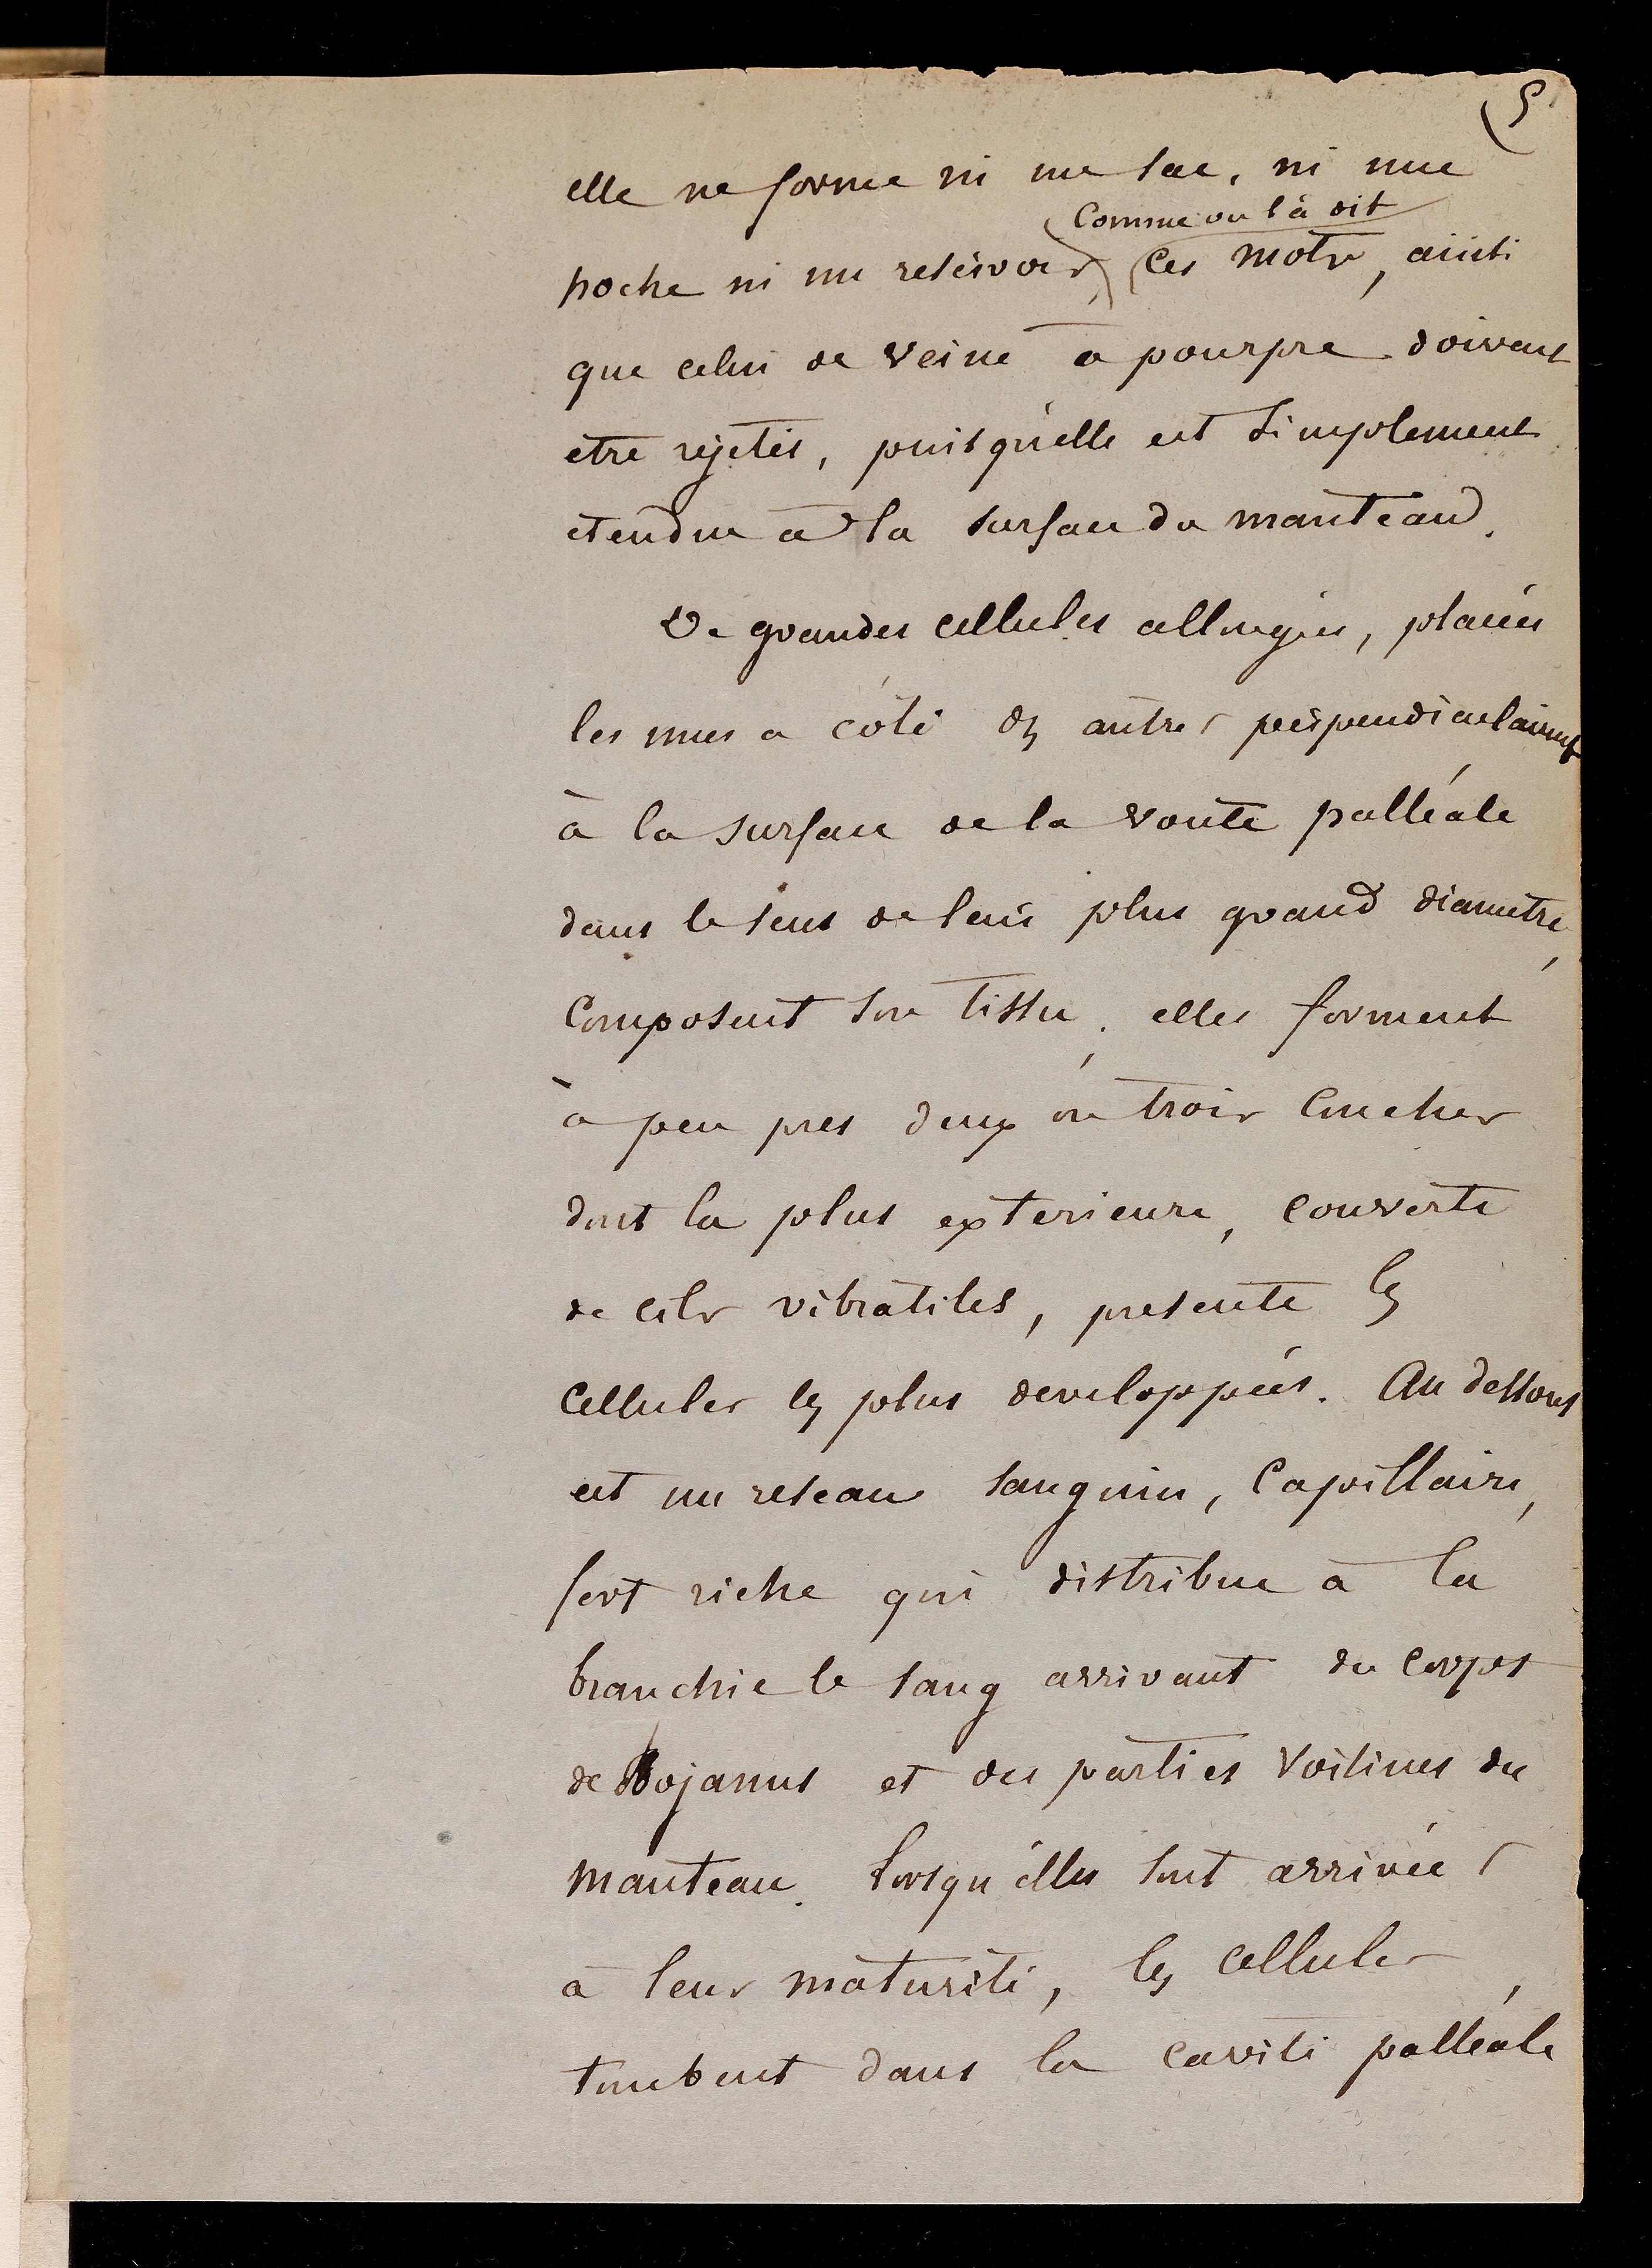 5
elle ne forme ni un sac, ni une
comme on l'à dit
poche ni un reservoir, ces mots, ainsi
que celui de veine à pourpre doivent
etre rejetés, puisqu'elle est simplement
etendue à la surface du manteau.
De grandes cellules allongées, placées
les unes a côté des autres perpendiculairemt
à la surface de la voute palléale
dans le sens de leur plus grand diametre,
composent son tissu, elles forment
à peu pres deux ou trois couches
dont la plus exterieure, couverte
de cils vibratiles, presente les
cellules les plus developpées. Au dessous
est un reseau sanguin, capillaire,
fort riche qui distribue à la
branchie le sang arrivant du corps
de Bojanus et des parties voisines du
manteau. Lorsqu'elles sont arrivées
à leur maturité, les cellules,
tombent dans la cavité palléale